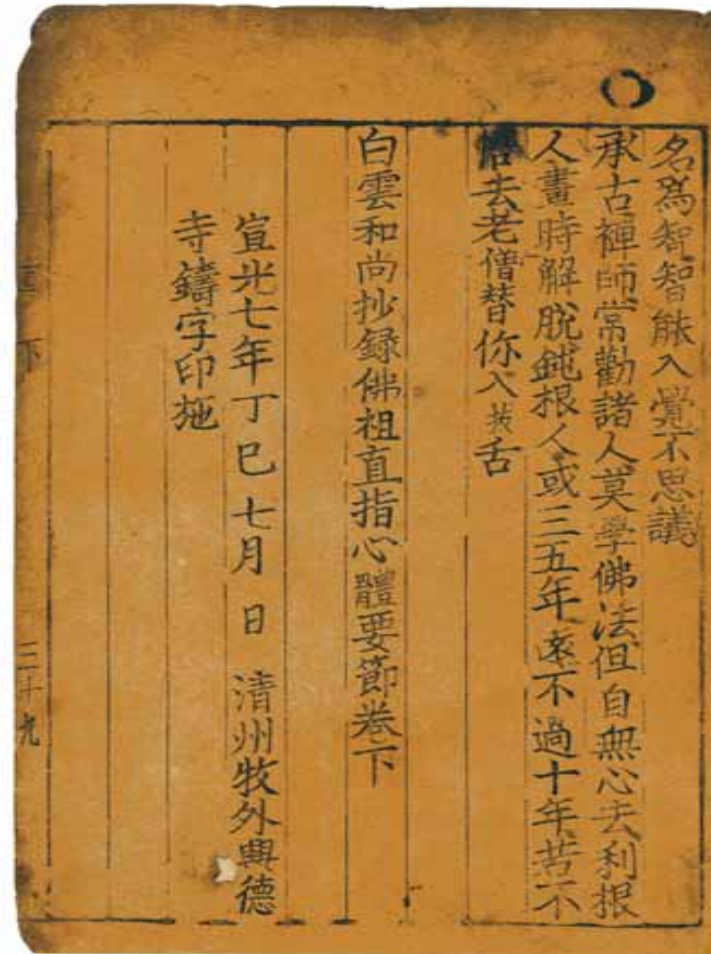 名爲智智能入覺不思議
承古禪師常勸諸人莫學佛法但自無心去利根
人晝時解脫鈍根人或三五年遠不過十年若不
悟去老僧替你入拔舌
白雲和尙抄錄佛祖直指心體要節卷下
宣光七年丁巳七月 日 清州牧外興德
寺鑄字印施
下
三十九